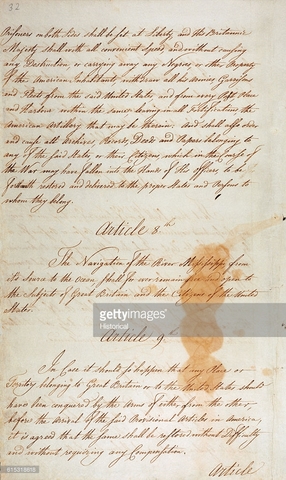 32
Prisoners on both sides shall be set at Liberty, and his Britannic
Majesty shall with all convenient Speed, and without causing
any Destruction, or carrying away any Negroes, or other Property
of the American Inhabitants, withdraw all his Armies, Garrisons
and Fleets from the said United States, and from every Port, Place
and Harbour within the same; leaving in all Fortifications the
American Artillery that may be therein: And shall also order
and cause all Archives, Records, Deeds and Papers belonging to
any of the said States, or their Citizens, which in the Course of
the War may have fallen into the Hands of his Officers, to be
forthwith restored and delivered to the proper States and Persons to
whom they belong.
Article 8th
The Navigation of the River Mississippi, from
its source to the Ocean, shall for ever remain free and open to
the Subjects of Great Britain and the Citizens of the United
States.
gettyimages®
Historical
Article 9th
In Case it should so happen that any Place or
Territory belonging to Great Britain or to the United States should
have been conquered by the Arms of either, from the other,
before the Arrival of the said Provisional Articles in America,
it is agreed that the same shall be restored without Difficulty
and without requiring any Compensation.
Article